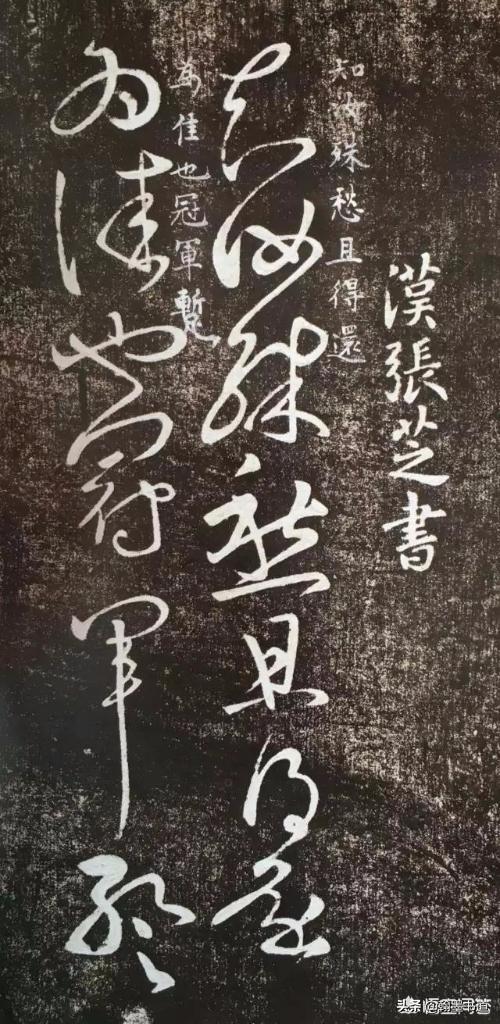 漢張芝書
知汝殊愁且得還
知汝殊愁且得還
為佳也冠軍暫
為佳也冠軍暫
头条